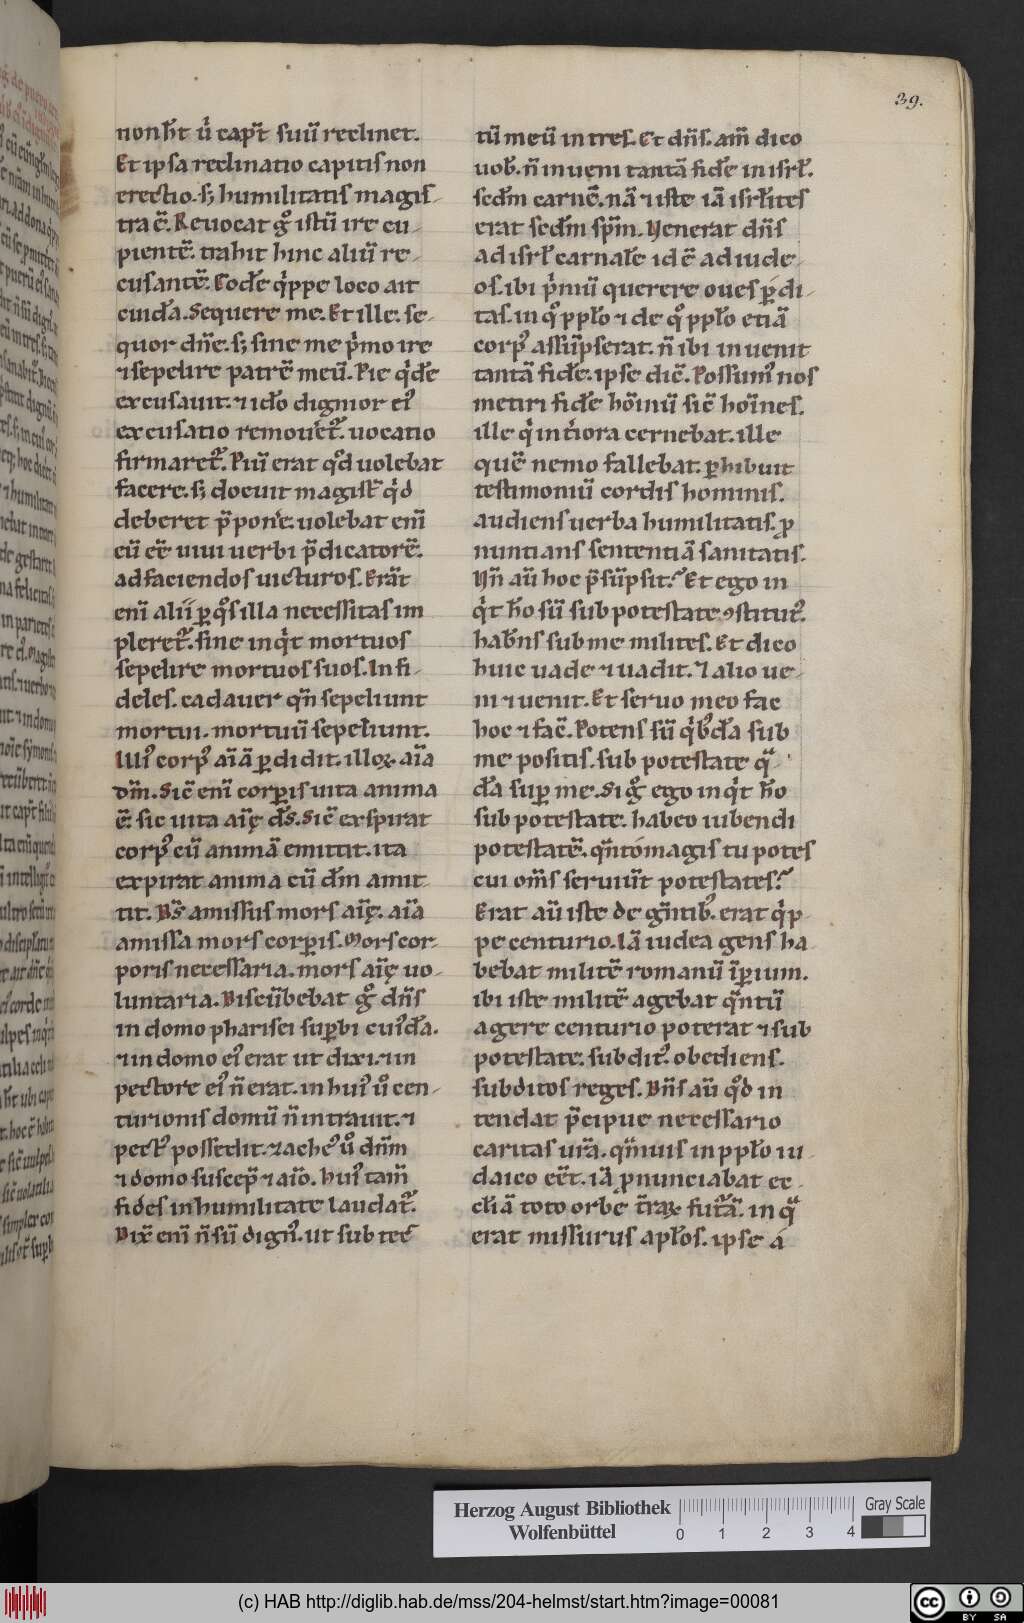 39.
non h̄t u̇ capt̄ suū reclinet.
Et ipsa reclinatio capitis non
erectio. s; humilitatis magis-
tra ē. Reuocat gͦ istū ire cu-
pientē. trahit hinc aliū re-
cusantē. Eodē qͥppe loco ait
cuidā. Sequere me. Et ille. se-
quor dn̄e. s; sine me pͥmo ire
⁊ sepelire patrē meū. Pie qͥdē
excusauit. ⁊ ido dignior eiꝰ
excusatio remouet̄ᷣ. uocatio
firmaret̄ᷣ. Piū erat qͦd uolebat
facere. s; docuit magist̄ qͥd
deberet p̄pone. uolebat eni̅
eū eē uiui uerbi p̄dicatorē.
ad faciendos uicturos. Erāt
eni̅ alii ꝑ qͦs illa necessitas im
pleret̄ᷣ. sine inqͥt mortuos
sepelire mortuos suos. Infi-
deles. cadauer qn̄ sepeliunt
mortui. mortuū sepeliunt.
Illiꝰ corpꝰ aīā ꝑdidit. illoꝝ aīa
dm̄. Sic̄ eni̅ corꝑis uita anima
ē. sic uita aīę ds̄. Sic̄ exspirat
corpꝰ cū animā emittit. ita
expirat anima cū dm̄ amit-
tit. Ds̄ amissus mors aīę. aīa
amissa mors corꝑis. Mors cor-
poris necessaria. mors aīę uo-
luntaria. Discūbebat gͦ dn̄s
in domo pharisei suꝑbi cuiꝰdā.
⁊ in domo eiꝰ erat ut dixi. ⁊ in
pectore eiꝰ n̄ erat. in huiꝰ uͦ cen-
turionis domū n̄ intrauit. ⁊
pectꝰ possedit. ⁊ zacheꝰ uͦ dnm̄
⁊ domo suscep̄ ⁊ aīo. huiꝰ tam̄
fides in humilitate laudat̄ᷣ.
Dix̄ eni̅ n̄ sū dignꝰ. ut sub tec̄
tū meū intres. Et dn̄s. am̄ dico
uob̄. n̄ inueni tantā fidē in isrł.
sedm̄ carnē. nā ⁊ iste iā isrłites
erat sedm̄ spm̄. Venerat dn̄s
ad isrł carnale id ē ad iude-
os. ibi pͥmū querere oues ꝑdi-
tas. in qͦ ppło ⁊ de qͦ ppło etiā
corpꝰ assūpserat. n̄ ibi inuenit
tantā fidē. ipse dic̄. Possumꝰ nos
metiri fidē hoīnū sic̄ hoīnes.
ille qͥ int̄iora cernebat. ille
quē nemo fallebat. ꝑhibuit
testimoniū cordis hominis.
audiens uerba humilitatis. ꝓ
nuntians sententiā sanitatis.
Vn̄ au̅ hoc p̄sūpsit? Et ego in
qͥt ho̅ sū sub potestate ꝯstitutꝰ.
habn̄s sub me milites. Et dico
huic uade ⁊ uadit. ⁊ alio ue-
ni ⁊ uenit. Et seruo meo fac
hoc ⁊ fac̄. Potens sū qͥbꝰdā sub
me positis. sub potestate qᷓ
dā suꝑ me. Si gͦ ego inqͥt ho̅
sub potestate. habeo iubendi
potestatē. qn̄to magis tu potes
cui om̄s seruiūt potestates?
Erat au̅ iste de gn̄tibꝰ. erat qͥp-
pe centurio. Iā iudea gens ha
bebat militē romanū īꝑium.
ibi iste militē agebat qᷓntū
agere centurio poterat ⁊ sub
potestate. subditꝰ obediens.
subditos reges. Dn̄s au̅ qͦd in
tendat p̄cipue necessario
caritas ur̄a. qᷓmuis in ppło iu
daico eēt. iā ꝓnunciabat ec-
cłiā toto orbe tr̄aꝝ futᷣā. in qᷓ
erat missurus apłos. ipse á
Herzog August Bibliothek
Wolfenbüttel
0 1 2 3 4
Gray Scale
(c) HAB http://diglib.hab.de/mss/204-helmst/start.htm?image=00081
cc BY SA